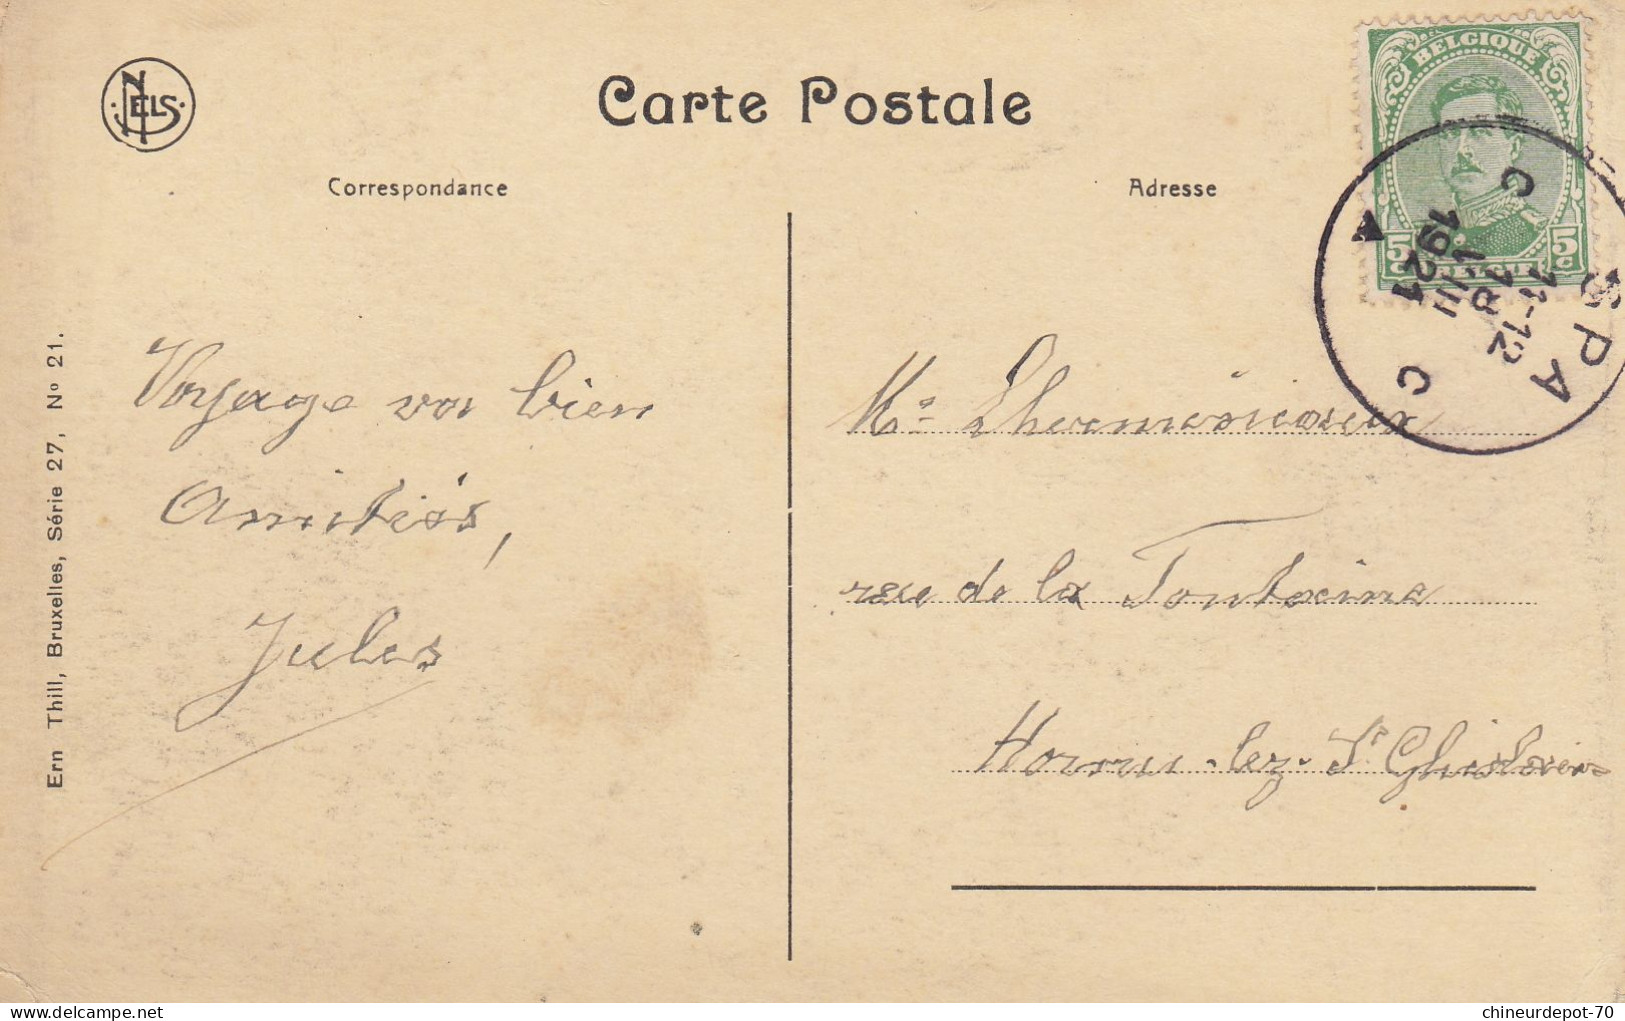 NELS
Carte Postale
Correspondance
Adresse
BELGIQUE
5c 5c
BELGIË
SPA
11-12
1 R
VIII
1921
C C
Voyage va bien
Amitiés,
Jules
Mr Lhermineaux
rue de la Fontaine
Hornu-lez-St Ghislain
Ern Thill, Bruxelles, Série 27, No 21.
chineurdepot-70